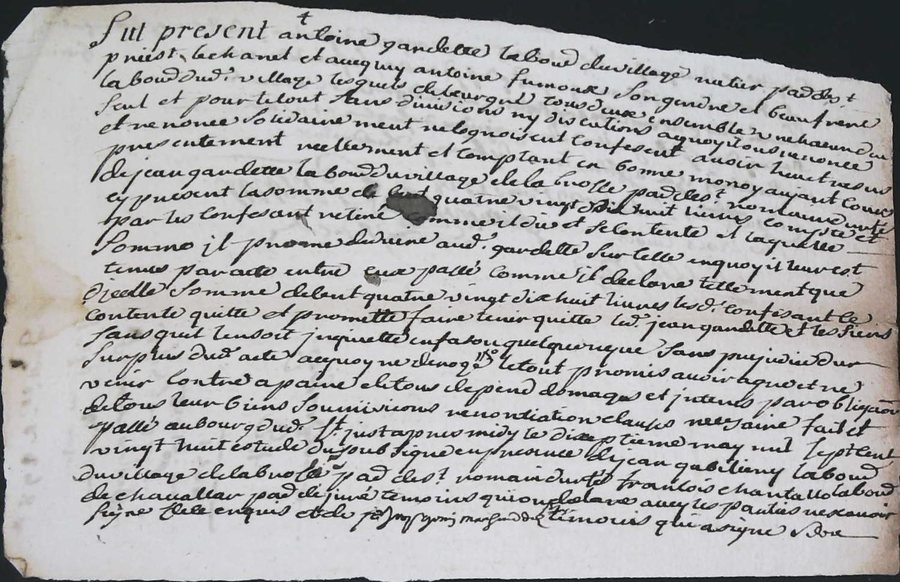 fut present antoine gardette labour du village nutier par de st
priest lachanet et avecquy antoine fumoux son gendre et beaufrere
labour dud. village lesquels de leur gré tous deux ensemble un chacun d'eux
seul et pour le tout sans divizions ny discutions a quoy ilous renonce
et renonce solidairement recognoiscent confesent avoir heut receus
presentement reellement et comptant en bonne monoy ayant cours
de jean gardette labour du village de la brosse par de st. romain durfé
cy present la somme de cent quatre vingt dix huit livres comptée et
par les confesant retiré comme il dit et se contente et laquelle
somme il prome deduire aud. gardette sur celle enquoy il leur est
tenus par acte entre eux passé comme il declare tellement que
dicelle somme de cent quatre vingt dix huit livres lesd. confesant le
contente quitte et promette faire tenir quitte led. jean gardette et les siens
sans quil leur soit inquietté en fason quelquonque sans prejudice du
surplus dud. acte a quoy ne deroge le tout promis avoir agre et ne
venir contre a paine de tous depend domages et interes par obligaon
de tous leur biens soumisions renontiation clauses necesaire fait et
passé au bourg dud. st. just apres midy le dixseptieme may mil sept cent
vingt huit estude du soubsigne en presence de jean gabilieny labour
du village de la brosse par de st. romain durfé francois chantallo labour
de chavallar par de juré temoins qui on declare avec les parties ne scavoir
signe de ce enquis et de marchand temoins qui a signe